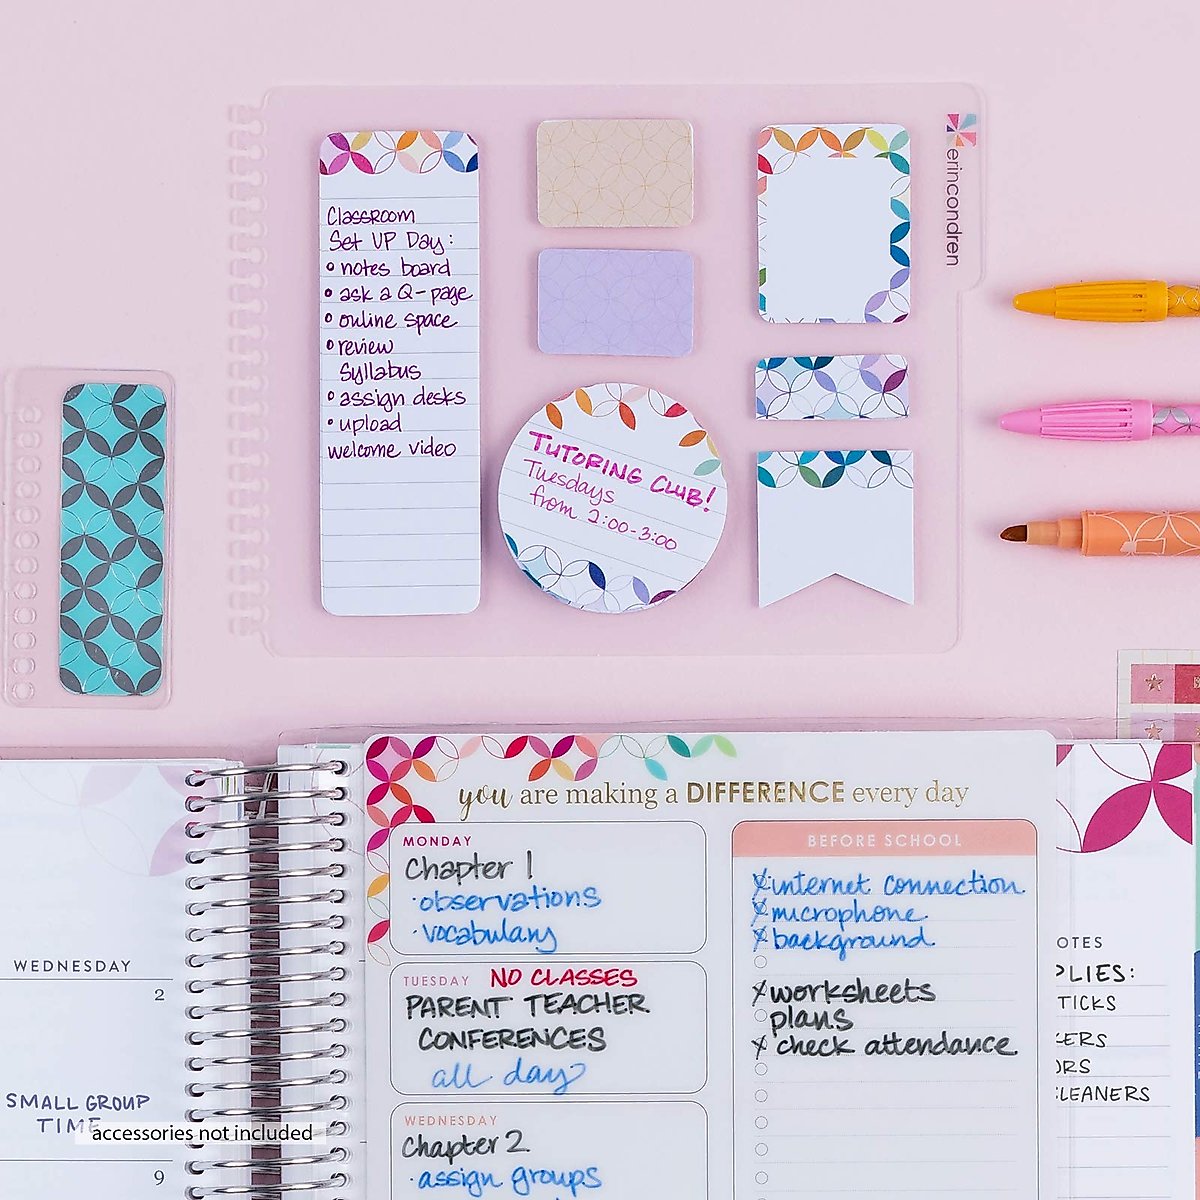 erincondren
Classroom
Set UP Day:
• notes board
• ask a Q-page
• online space
• review
Syllabus
• assign desks
• upload
welcome video
TUTORING CLUB!
Tuesdays
from 2:00-3:00
you are making a DIFFERENCE every day
MONDAY
Chapter 1
·observations
·vocabulary
TUESDAY NO CLASSES
PARENT TEACHER
CONFERENCES
all day
WEDNESDAY
Chapter 2
·assign groups
BEFORE SCHOOL
internet connection
microphone
background
worksheets
plans
check attendance
WEDNESDAY
2
SMALL GROUP
TIME
9
accessories not included
OTES
PLIES:
TICKS
KERS
ORS
CLEANERS